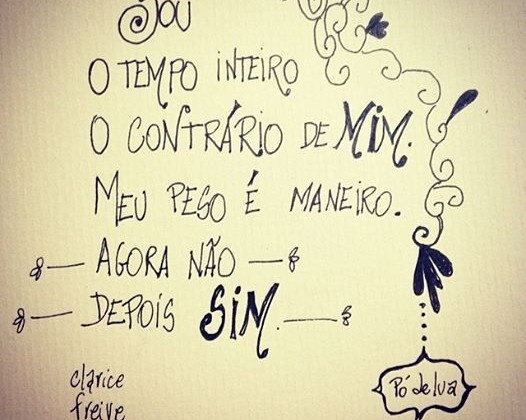 Sou
O TEMPO INTEIRO
O CONTRÁRIO DE MIM.
MEU PESO É MANEIRO.
AGORA NÃO
DEPOIS SIM.
clarice
freire
Pó de lua